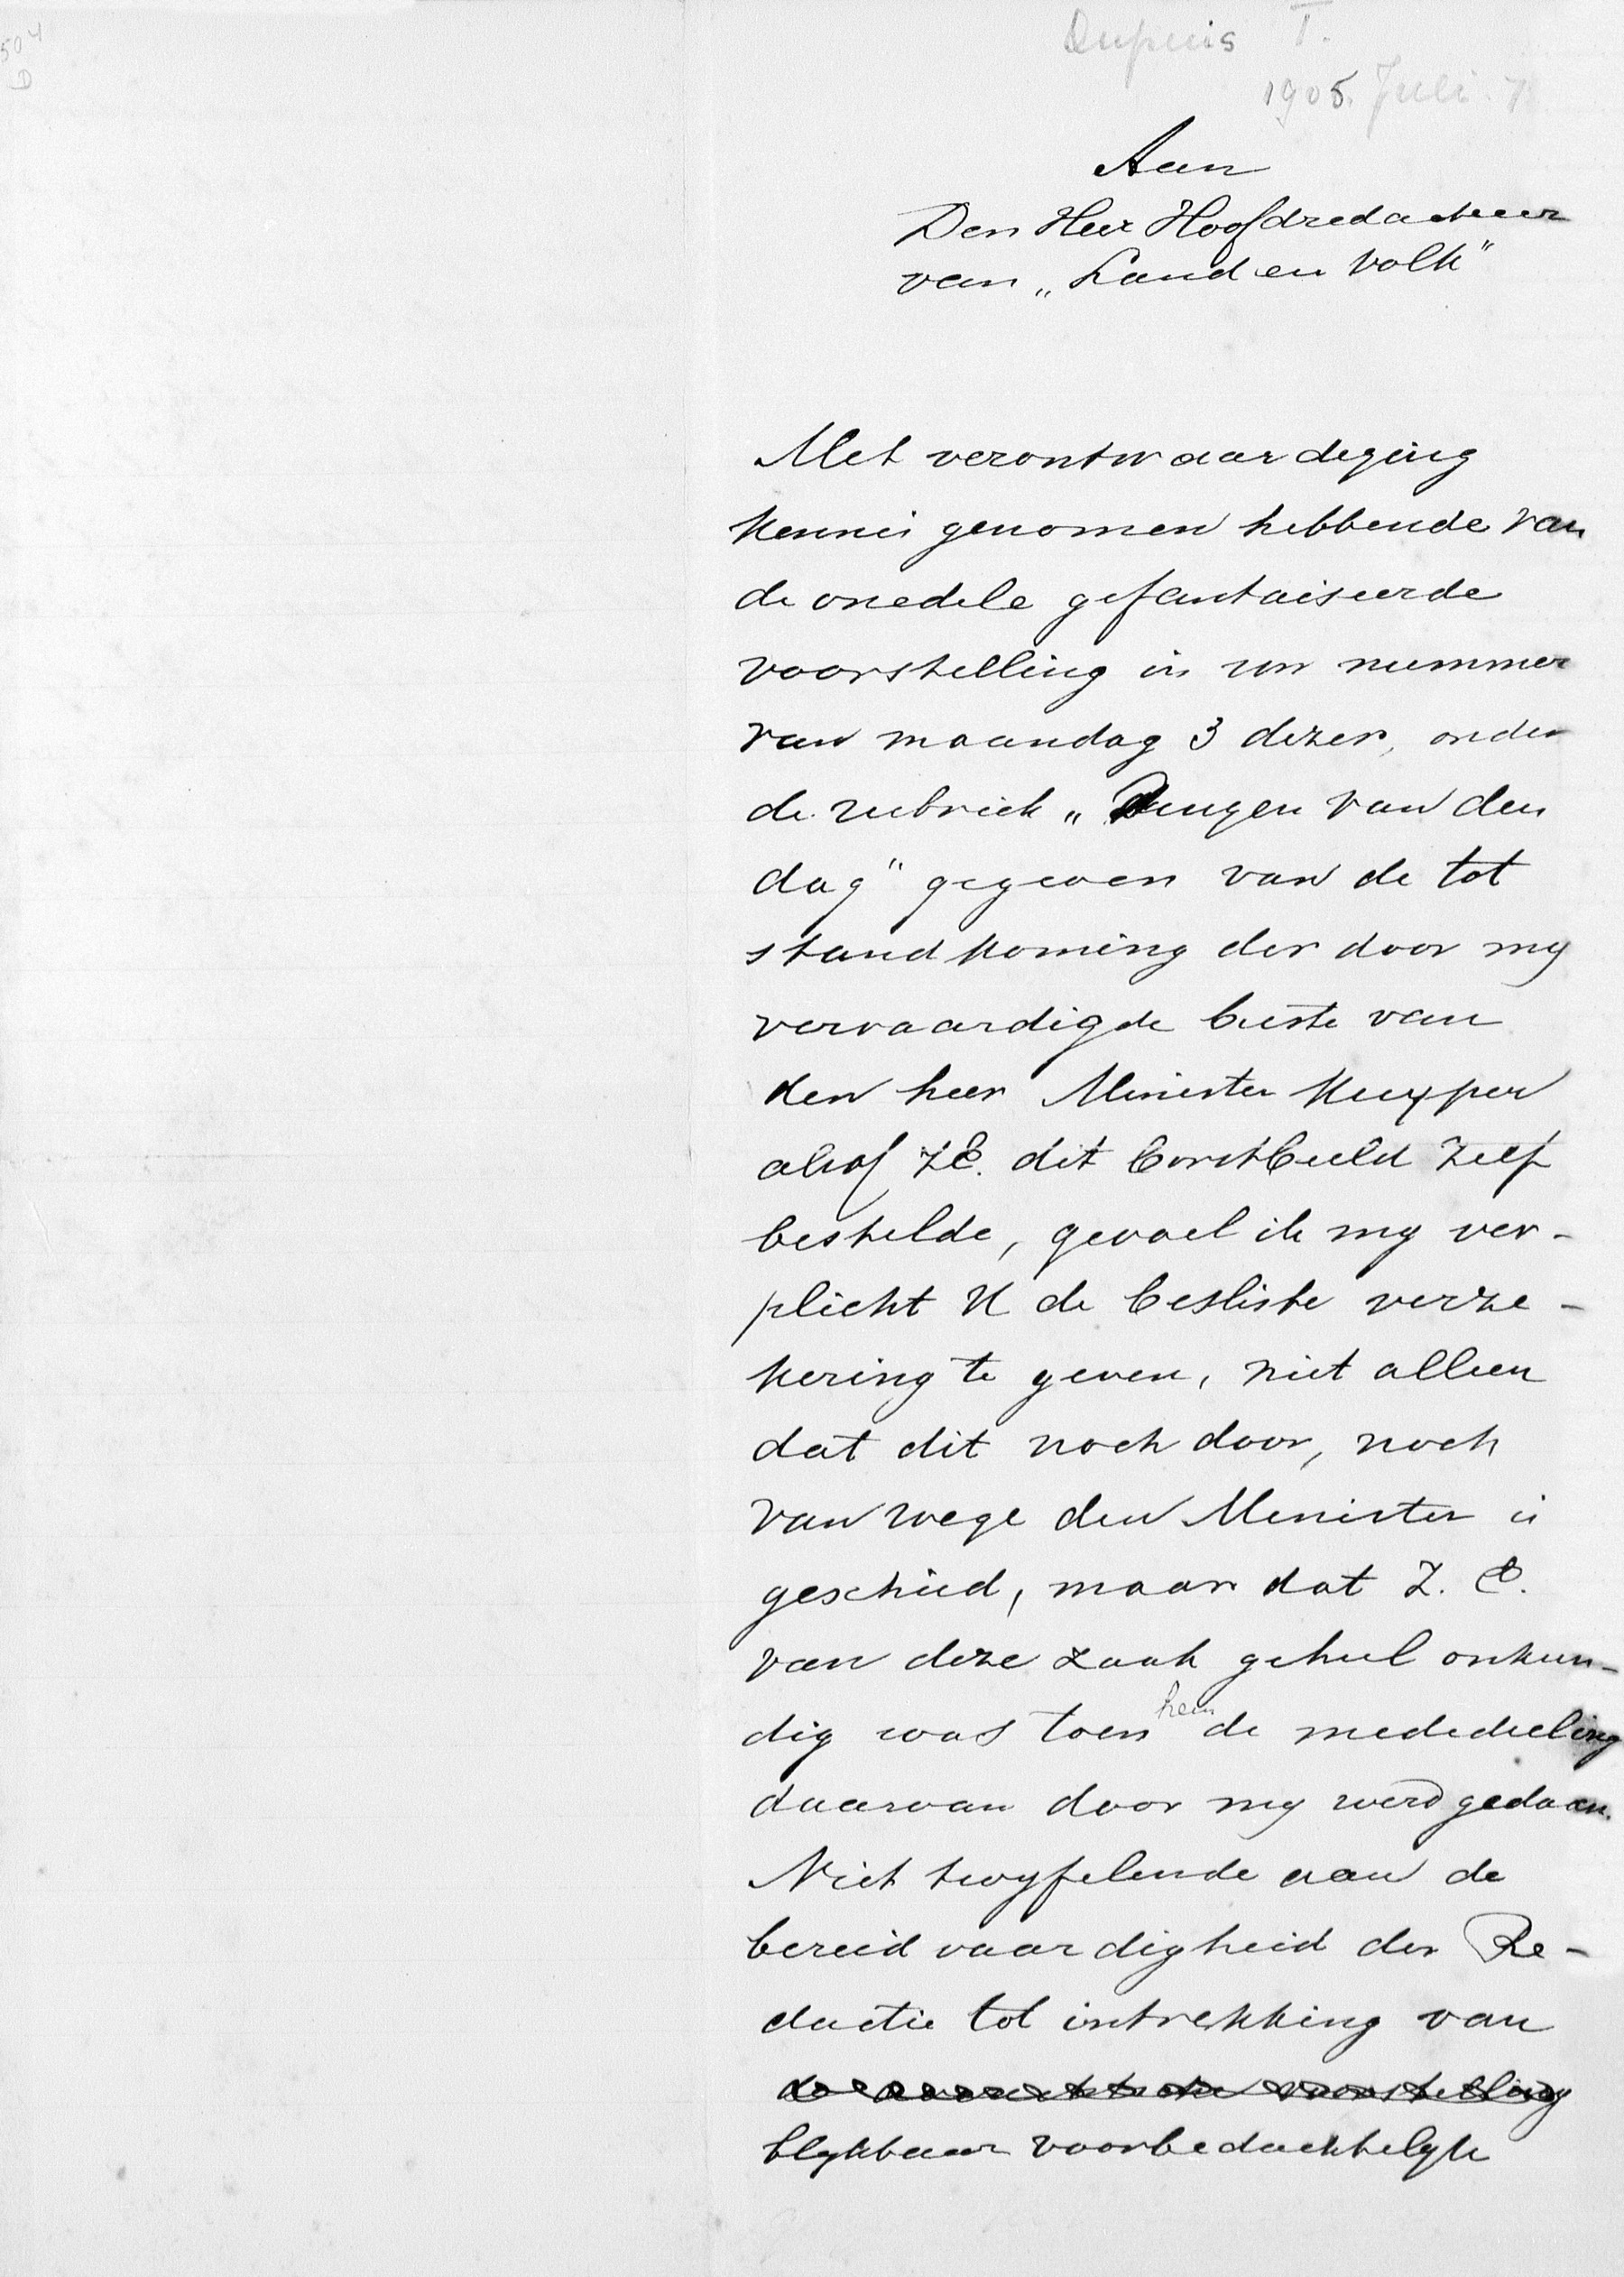 504
D
Dupuis T.
1905. Juli. 7
Aan
Den Heer Hoofdredacteur
van „Land en Volk"
Met verontwaardiging
kennis genomen hebbende van
de onedele gefantaiseerde
voorstelling in uw nummer
van maandag 3 dezer, onder
de rubriek „Dingen van den
dag" gegeven van de tot
standkoming der door my
vervaardigde buste van
den heer Minister Kuyper
alsof Z.E. dit borstbeeld zelf
bestelde, gevoel ik my ver-
plicht U de besliste verze-
kering te geven, niet alleen
dat dit noch door, noch
van wege den Minister is
geschied, maar dat Z. E.
van deze zaak geheel onkun-
dig was toen hem de mededeeling
daarvan door my werd gedaan.
Niet twyfelende aan de
bereidvaardigheid der Re-
dactie tot intrekking van
de voorstelling
blykbaar voorbedachtelyk